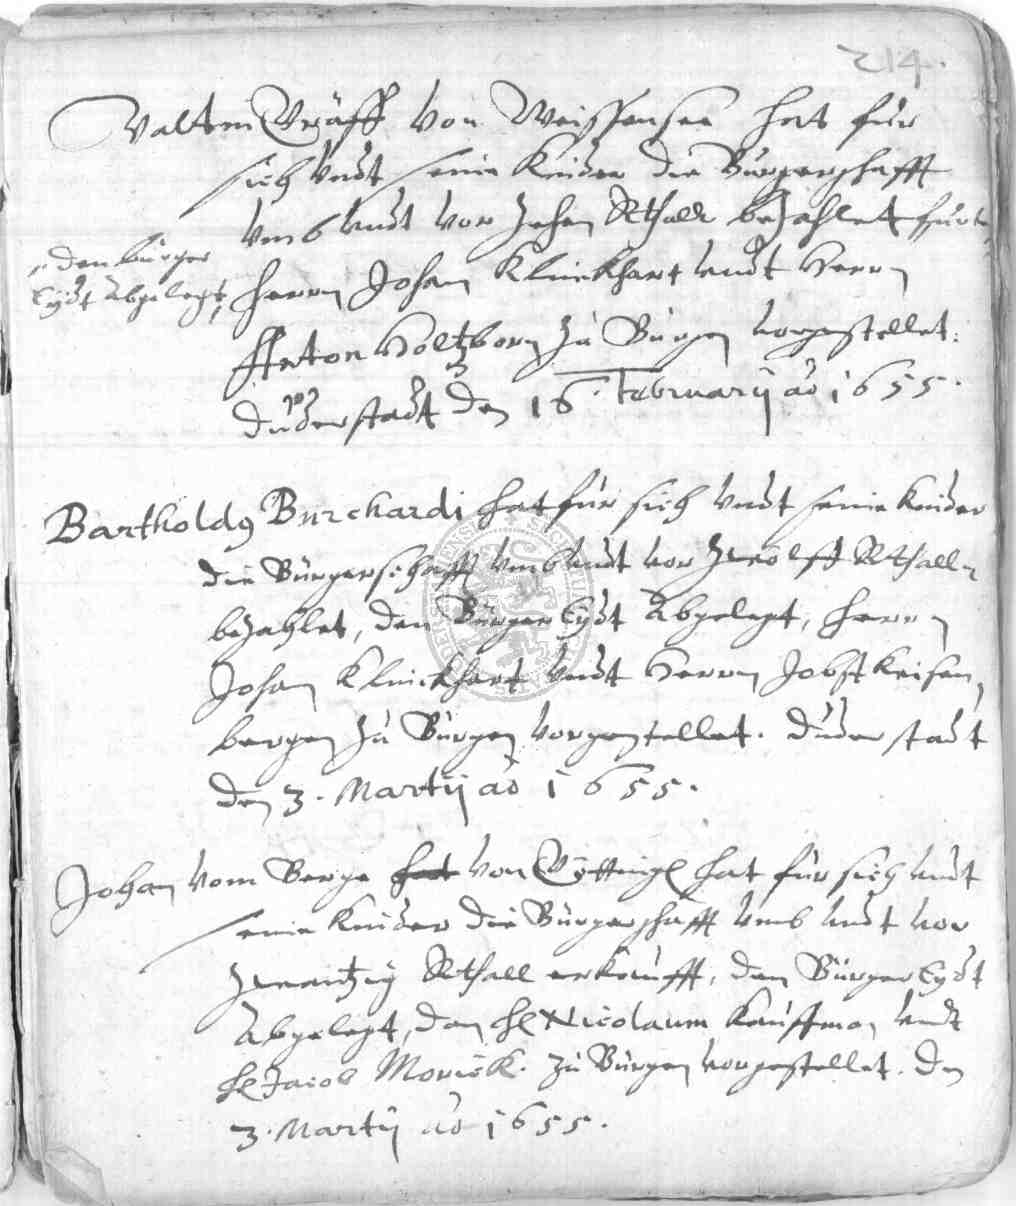 214.
Valtin Gräff von Weissensee hat für
sich undt seine Kinder die Bürgerschafft
umb undt vor Zehen Rthall bezahlet
den bürger
Eydt abgelegt,
Herrn Johan Klinckhart undt Herrn
Anton Holtzborn zu Bürgen vorgestellet.
Duderstadt den 16. Februarij aõ 1655.
Bartholdg Burchardi hat für sich undt seine Kinder
die Bürgerschafft umb undt vor Zwölff Rthall
bezahlet, den Bürger Eydt abgelegt, Herrn
Johan Klinckhart undt Herrn Jobst Keisen
bergen zu Bürgen vorgestellet. Duderstadt
den 3. Martij aõ 1655.
Johan vom Berge hat von hat für sich undt
seine Kinder die Bürgerschafft umb undt vor
Zwantzig Rthall erkaufft, den Bürger Eydt
abgelegt, den H Nicolaum Kauffman undt
H Jacob Morick. zu Bürgen vorgestellet. den
3. Martij aõ 1655.